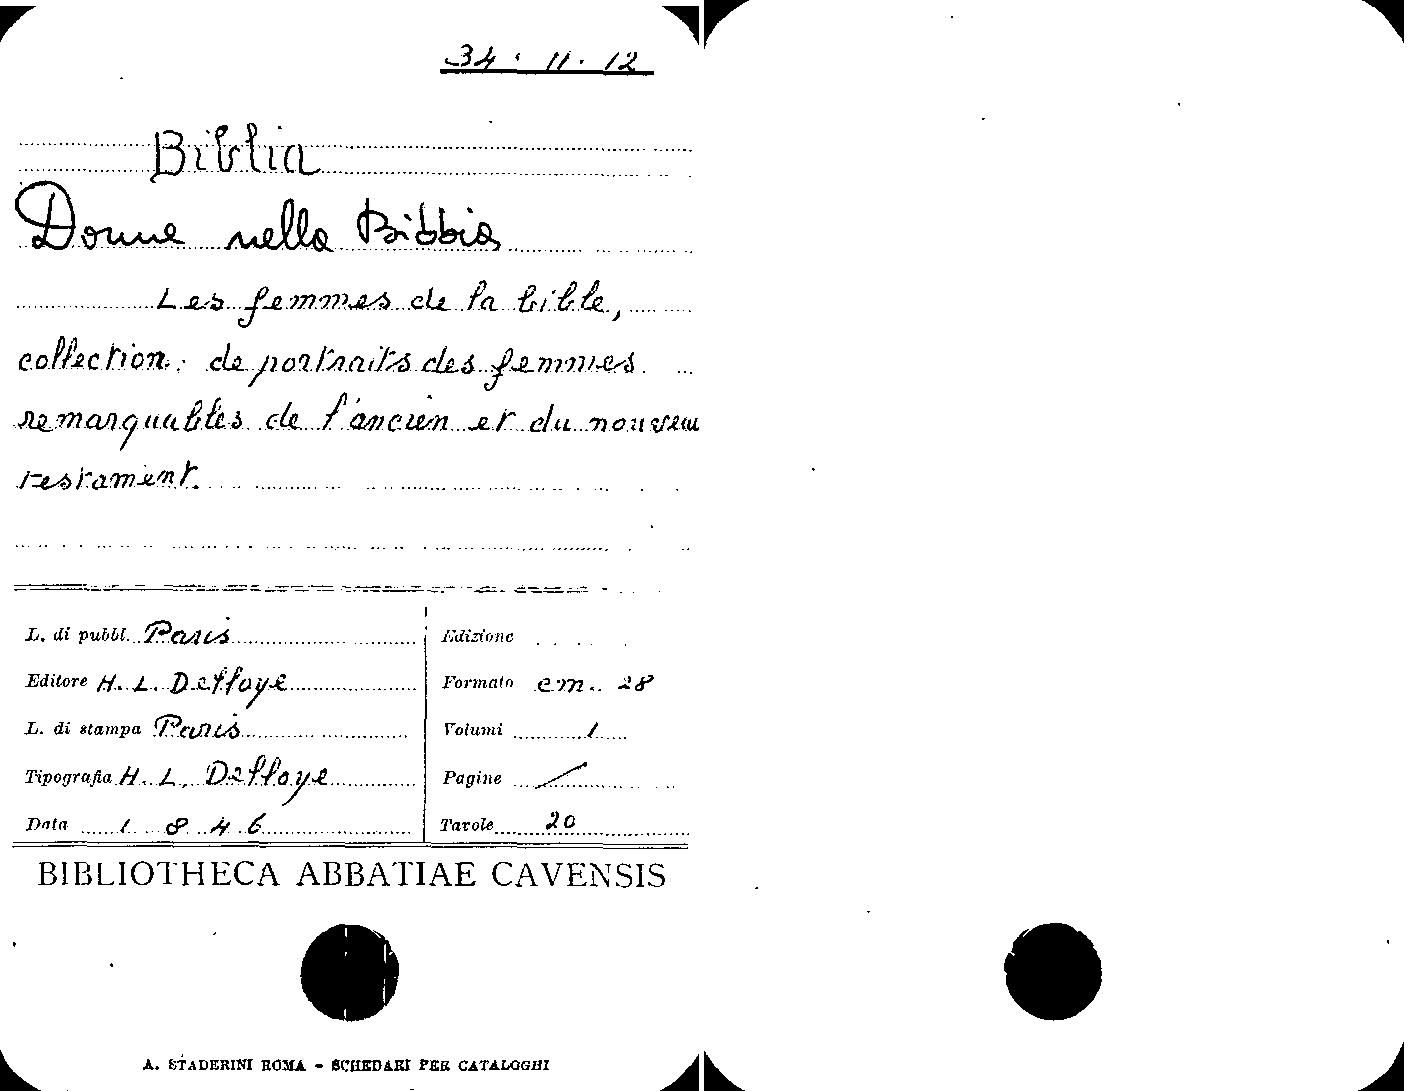 34 · 11 · 12
Biblia
Donne nella Bibbia
Les femmes de la bible,
collection de portraits des femmes
remarquables de l'ancien et du nouveau
testament.
L. di pubbl. Paris
Editore H. L. Delloye
L. di stampa Paris
Tipografia H. L. Delloye
Data 1846
Edizione
Formato cm. 28
Volumi 1
Pagine /
Tavole 20
BIBLIOTHECA ABBATIAE CAVENSIS
A. STADERINI ROMA - SCHEDARI PER CATALOGHI